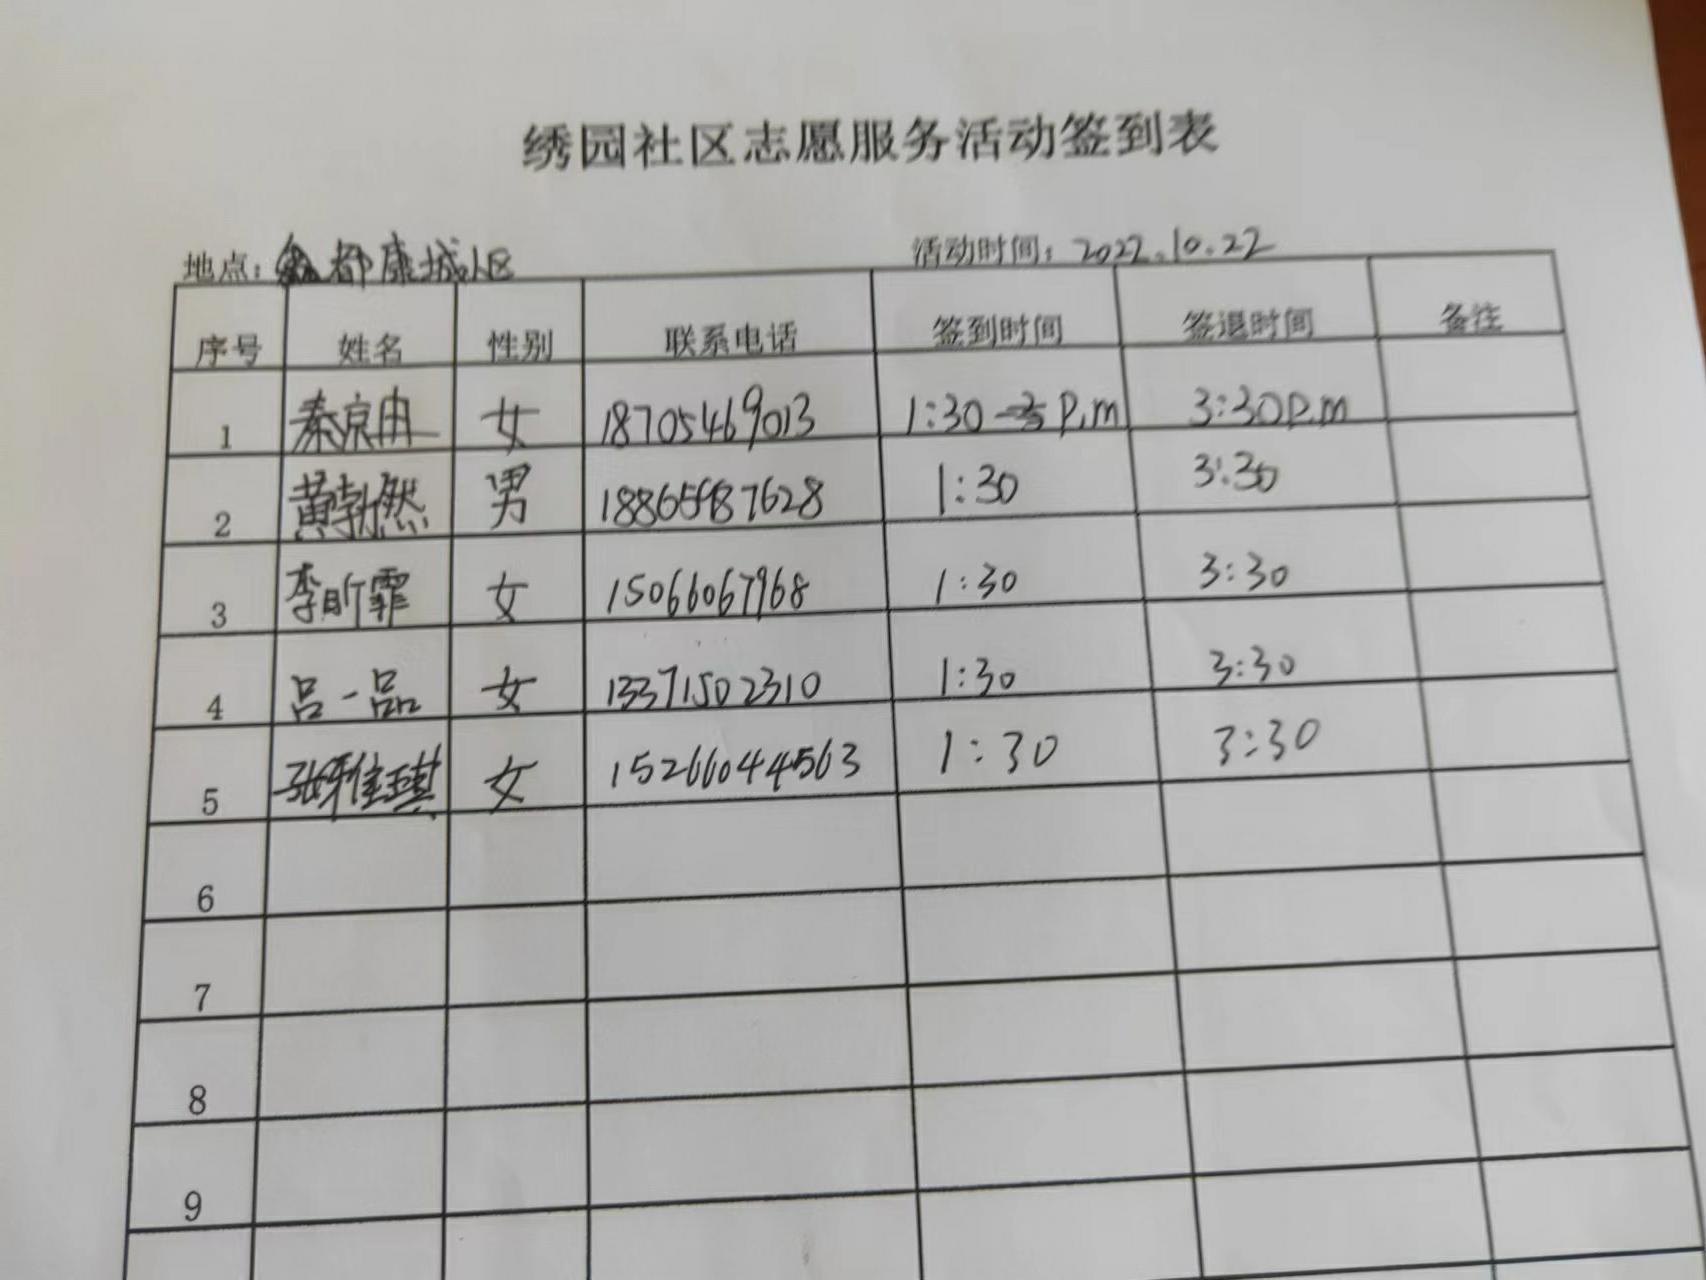 绣园社区志愿服务活动签到表
地点：鑫都康城小区 活动时间：2022.10.22
序号 姓名 性别 联系电话 签到时间 签退时间 备注
1 秦京冉 女 18705469013 1:30 P.m 3:30P.m
2 黄勃然 男 18865987628 1:30 3:30
3 李昕霏 女 15066067968 1:30 3:30
4 吕一品 女 13371502310 1:30 3:30
5 张雅琪 女 15266044563 1:30 3:30
6
7
8
9